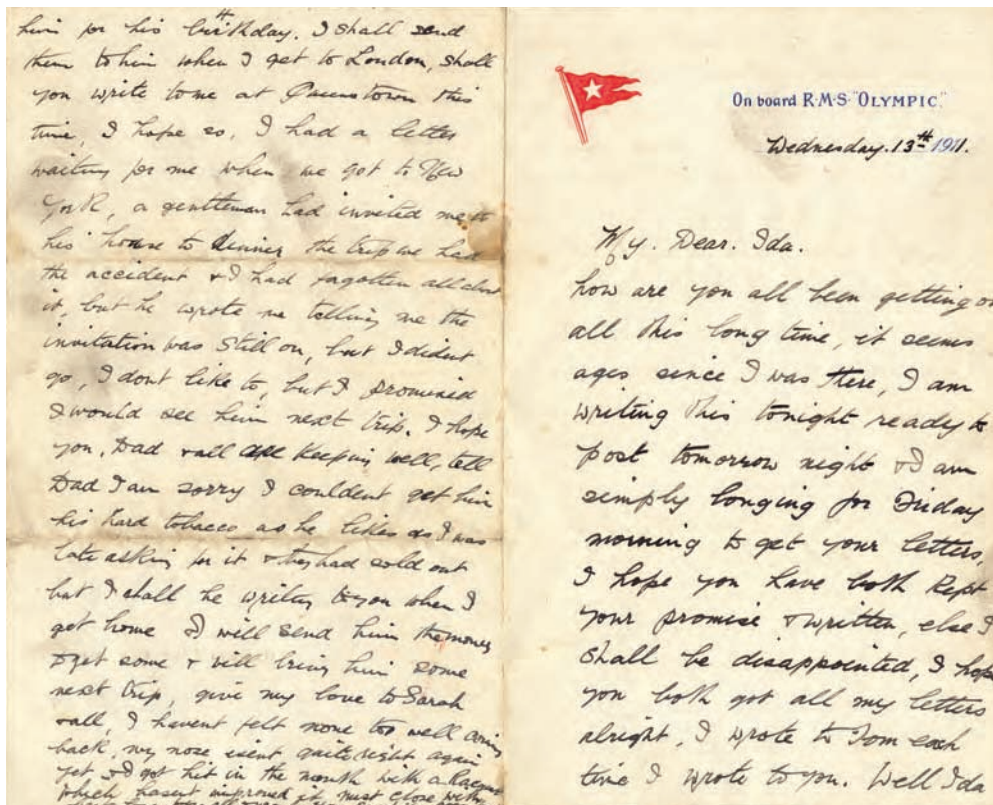 him for his birthday. I shall send
them to him when I get to London, shall
you write to me at Queenstown this
time, I hope so, I had a letter
waiting for me when we got to New
York, a gentleman had invited me to
his house to dinner the trip we had
the accident & I had forgotten all about
it, but he wrote me telling me the
invitation was still on, but I dident
go, I dont like to, but I promised
I would see him next trip. I hope
you, Dad & all are keeping well, tell
Dad I am sorry I couldent get him
his hard tobacco as he likes as I was
late asking for it & they had sold out
but I shall be writing to you when I
get home & I will send him the money
to get some & will bring him some
next trip, give my love to Sarah
& all, I havent felt none too well coming
back, my nose isent quite right again
yet & I got hit in the mouth with a
which hasent improved it, must close
On board R·M·S·"OLYMPIC."
Wednesday. 13th 1911.
My. Dear. Ida.
how are you all been getting on
all this long time, it seems
ages since I was there, I am
writing this tonight ready to
post tomorrow night & I am
simply longing for Friday
morning to get your letters,
I hope you have both kept
your promise & written, else I
shall be disappointed, I hope
you both got all my letters
alright, I wrote to Tom each
time I wrote to you. Well Ida